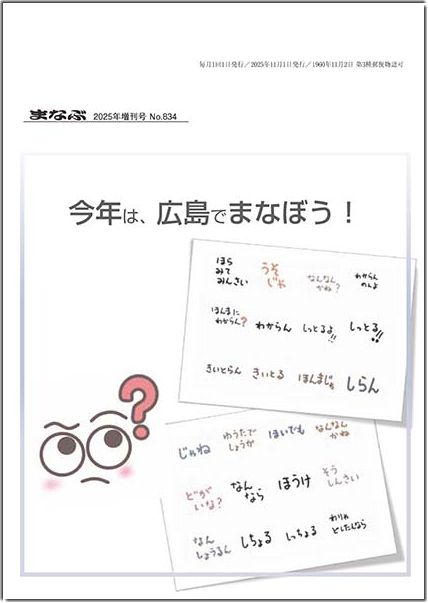 毎月1回1日発行／2025年11月1日発行／1960年11月2日 第3種郵便物認可
まなぶ 2025年増刊号 No.834
今年は、広島でまなぼう！
ほら
みて
みんさい
うそ
じゃ
なんなん
かね？
わからん
のんよ
ほんまに
わからん？
わからん
しっとるよ!!
しっとる!!
きいとらん
きいとる
ほんまじゃ
しらん
じゃね
ゆうたで
しょうが
ほいでも
なんなん
かね
どが
いな？
なん
なら
ほうけ
そう
しんさい
なん
しょうるん
しちょる
しっちょる
わりゃ
どしたんなら